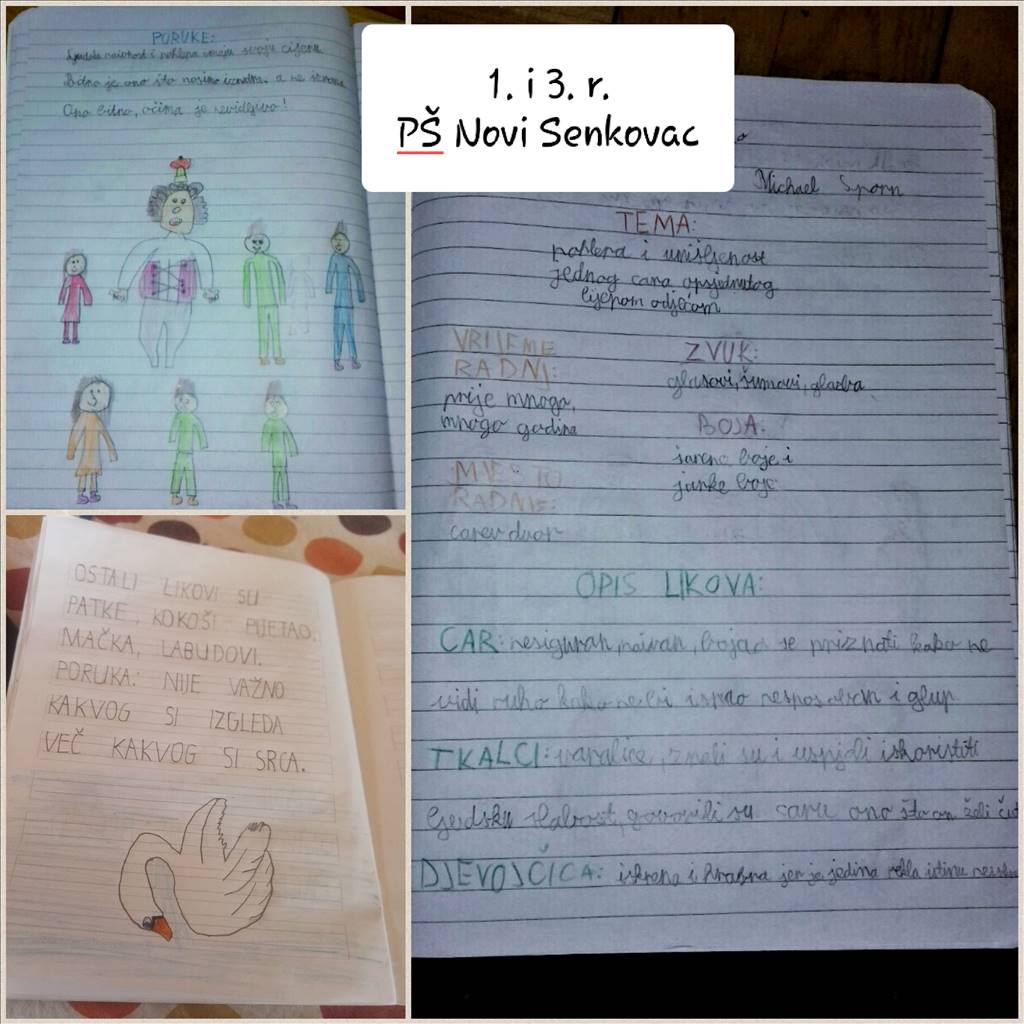 1. i 3. r.
PŠ Novi Senkovac
PORUKE:
Ljudska naivnost i pohlepa imaju svoju cijenu
Bitno je ono što nosimo iznutra, a ne izvana
Ono bitno, očima je nevidljivo!
OSTALI LIKOVI SU
PATKE, KOKOŠI PIJETAO,
MAČKA, LABUDOVI.
PORUKA: NIJE VAŽNO
KAKVOG SI IZGLEDA
VEČ KAKVOG SI SRCA.
Michael Sporn
TEMA:
pohlepa i umišljenost
jednog cara opsjednutog
lijepom odjećom
VRIJEME
RADNJ:
prije mnogo,
mnogo godina
MJESTO
RADNJE:
carev dvor
ZVUK:
glasovi, šumovi, glazba
BOJA:
jarene boje i
junke boje
OPIS LIKOVA:
CAR: nesiguran, naivan, bojao se priznati kako ne
vidi ruho kako ne bi ispao nesposoban i glup
TKALCI: varalice, znali su i uspjeli iskoristiti
ljudsku slabost, govorili su caru ono što on želi
DJEVOJČICA: iskrena i hrabra jer je jedina rekla istinu